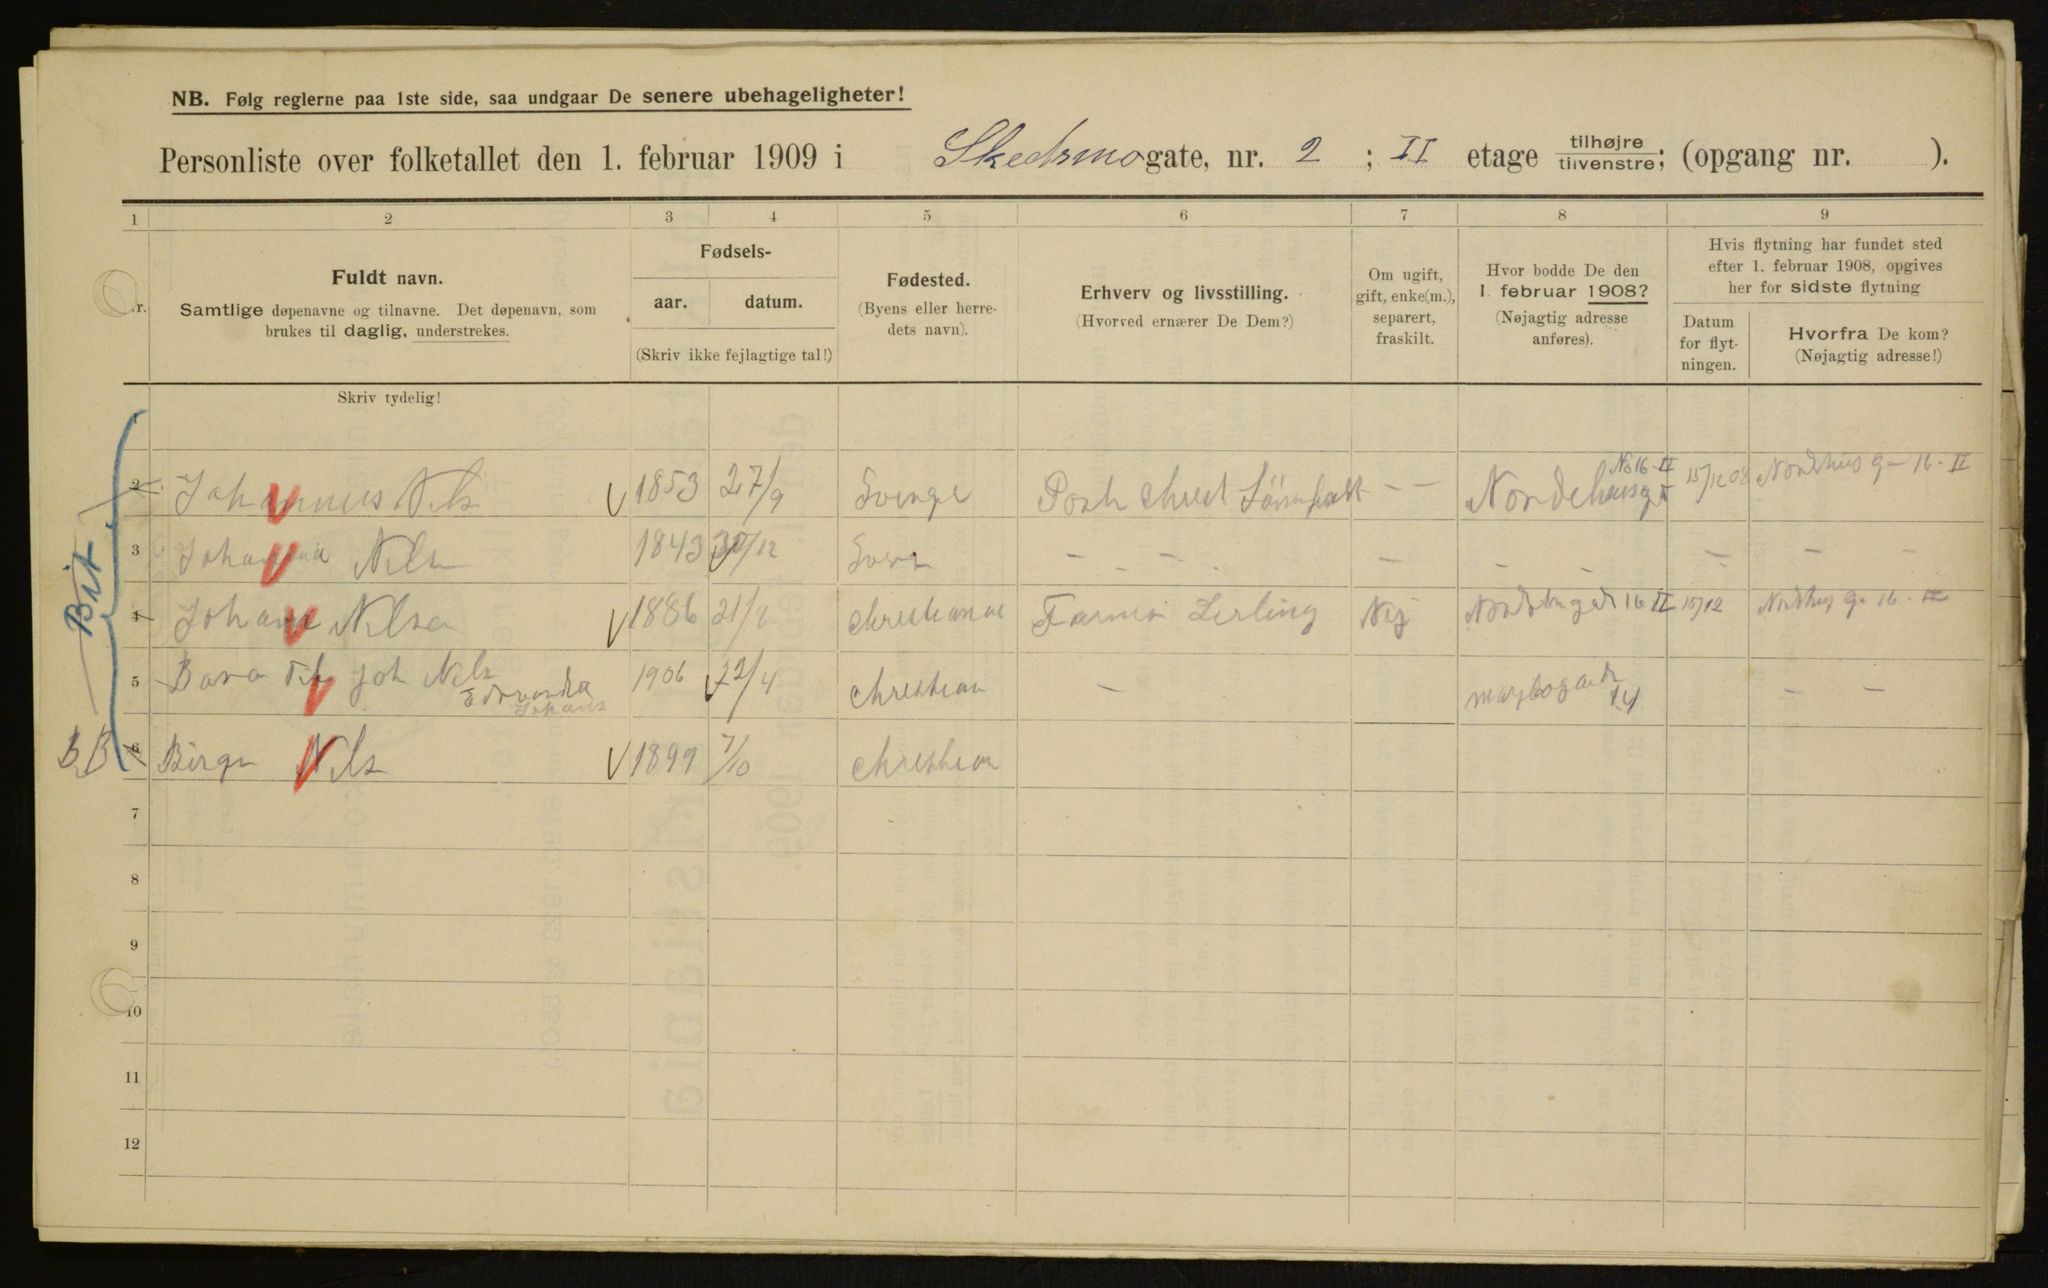 NB. Følg reglerne paa 1ste side, saa undgaar De senere ubehageligheter!
Personliste over folketallet den 1. februar 1909 i Skedsmogate, nr. 2 ; II etage tilhøjre tilvenstre; (opgang nr. ).
1 2 3 4 5 6 7 8 9
Fuldt navn.
Samtlige døpenavne og tilnavne. Det døpenavn, som
brukes til daglig, understrekes.
Fødsels-
aar. datum.
(Skriv ikke fejlagtige tal!)
Fødested.
(Byens eller herre-
dets navn).
Erhverv og livsstilling.
(Hvorved ernærer De Dem?)
Om ugift,
gift, enke(m.),
separert,
fraskilt.
Hvor bodde De den
1. februar 1908?
(Nøjagtig adresse
anføres).
Hvis flytning har fundet sted
efter 1. februar 1908, opgives
her for sidste flytning
Datum
for flyt-
ningen.
Hvorfra De kom?
(Nøjagtig adresse!)
Skriv tydelig!
1
2 Johannes Nils 1853 27/9 No 16-II 15/12 08 16-II
3 Nils 1843 30/12 — — — — — — — —
4 Johan Nilsen 1886 21/8 Christiania Nej 16 II 15/12 16-II
5 Joh Nils 1906 22/4 Christian — 14 — —
B.B 6 Birger Nils 1899 7/10 Christian
7
8
9
10
11
12